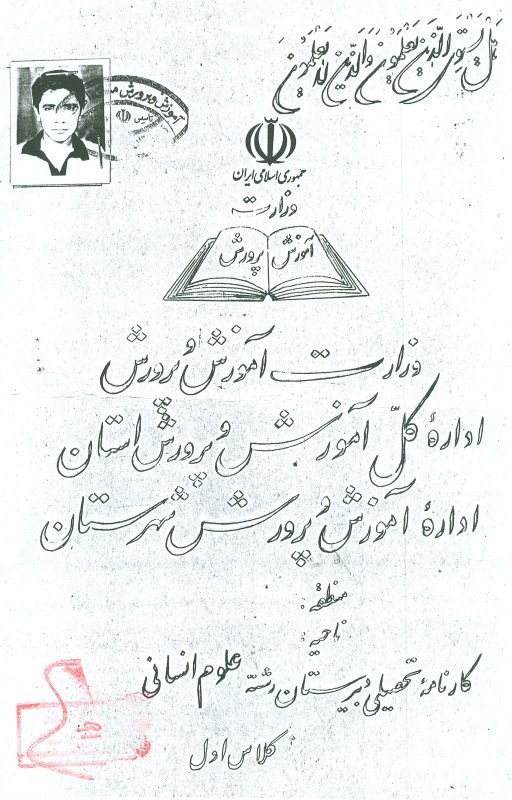 هَلْ یَسْتَوِی الَّذینَ یَعْلَمُونَ وَالَّذینَ لا یَعْلَمُونَ
آموزش و پرورش
تأسیس
جمهوری اسلامی ایران
وزارت
آموزش پرورش
وزارت آموزش و پرورش
ادارهٔ کلّ آموزش و پرورش استان
ادارهٔ آموزش و پرورش شهرستان
منطقه:
ناحیه:
کارنامهٔ تحصیلی دبیرستان رشتهٔ علوم انسانی
کلاس اول